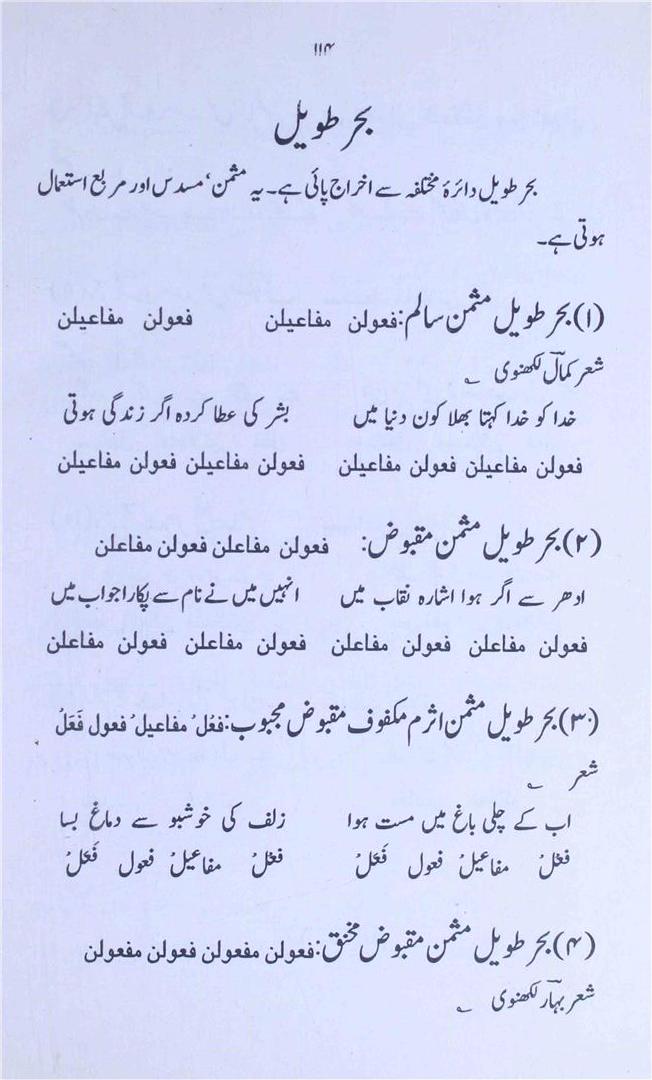 ۱۱۴
بحر طویل
بحر طویل دائرۂ مختلفہ سے اخراج پائی ہے۔ یہ مثمن، مسدس اور مربع استعمال
ہوتی ہے۔
(۱) بحر طویل مثمن سالم: فعولن مفاعیلن فعولن مفاعیلن
شعر کمالؔ لکھنوی ؎
خدا کو خدا کہتا بھلا کون دنیا میں بشر کی عطا کردہ اگر زندگی ہوتی
فعولن مفاعیلن فعولن مفاعیلن فعولن مفاعیلن فعولن مفاعیلن
(۲) بحر طویل مثمن مقبوض: فعولن مفاعلن فعولن مفاعلن
ادھر سے اگر ہوا اشارہ نقاب میں انہیں میں نے نام سے پکارا جواب میں
فعولن مفاعلن فعولن مفاعلن فعولن مفاعلن فعولن مفاعلن
(۳) بحر طویل مثمن اثرم مکفوف مقبوض محبوب: فعْلُ مفاعیلُ فعول فَعَلُ
شعر ؎
اب کے چلی باغ میں مست ہوا زلف کی خوشبو سے دماغ بسا
فعْلُ مفاعیلُ فعول فَعَلُ فعْلُ مفاعیلُ فعول فَعَلُ
(۴) بحر طویل مثمن مقبوض مخنق: فعولن مفعولن فعولن مفعولن
شعر بہارؔ لکھنوی ؎